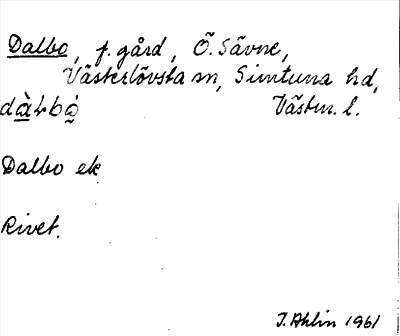 Dalbo, f. gård, Ö. Sävne,
Västerlövsta sn, Simtuna hd,
dàLbȯ̰ Västm. l.
Dalbo ek
Rivet.
J. Ahlin 1961